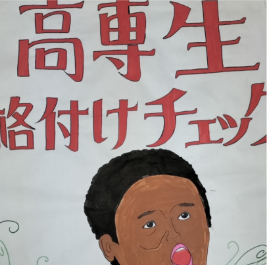 高専生
格付けチェック